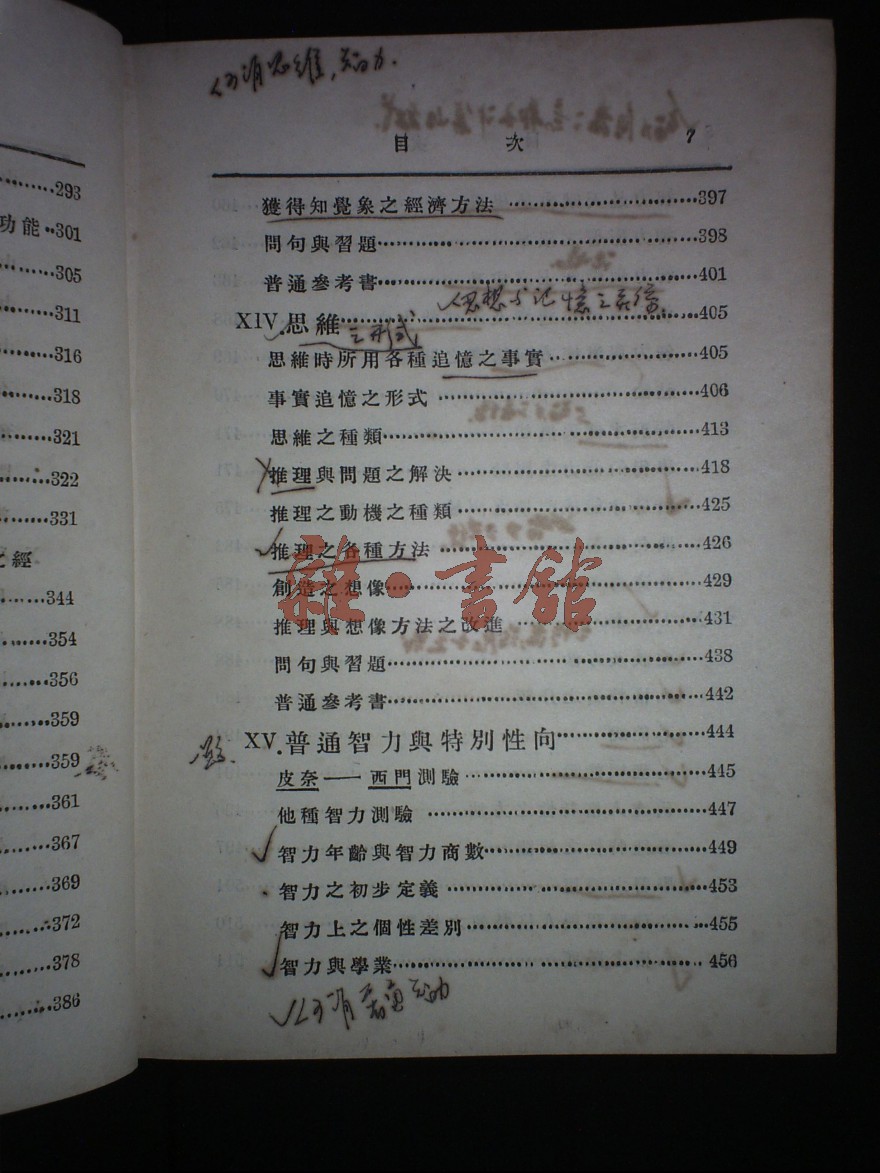 何謂思維,智力.
目 次 7
293
功能 301
305
311
316
318
321
322
331
之經
344
354
356
359
359
361
367
369
372
378
386
獲得知覺象之經濟方法 397
問句與習題 398
普通參考書 401
思想与记憶之
XIV.思維 405
之形式
思維時所用各種追憶之事實 405
事實追憶之形式 406
思維之種類 413
推理與問題之解決 418
推理之動機之種類 425
推理之各種方法 426
創造之想像 429
推理與想像方法之改進 431
問句與習題 438
普通參考書 442
XV.普通智力與特別性向 444
皮奈——西門測驗 445
他種智力測驗 447
智力年齡與智力商數 449
智力之初步定義 453
智力上之個性差別 455
智力與學業 456
何謂普通智力
雜·書館